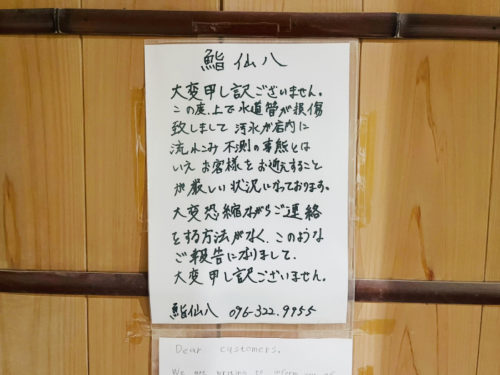 鮨仙八
大変申し訳ございません。
この度、上で水道管が損傷
致しまして 汚水が店内に
流れこみ 不測の事態とは
いえ お客様をお迎えすること
が厳しい状況になっております。
大変恐縮ながらご連絡
をする方法がなく、このような
ご報告になりまして、
大変申し訳ございません。
鮨仙八 096-322-9955
Dear customers,
We are